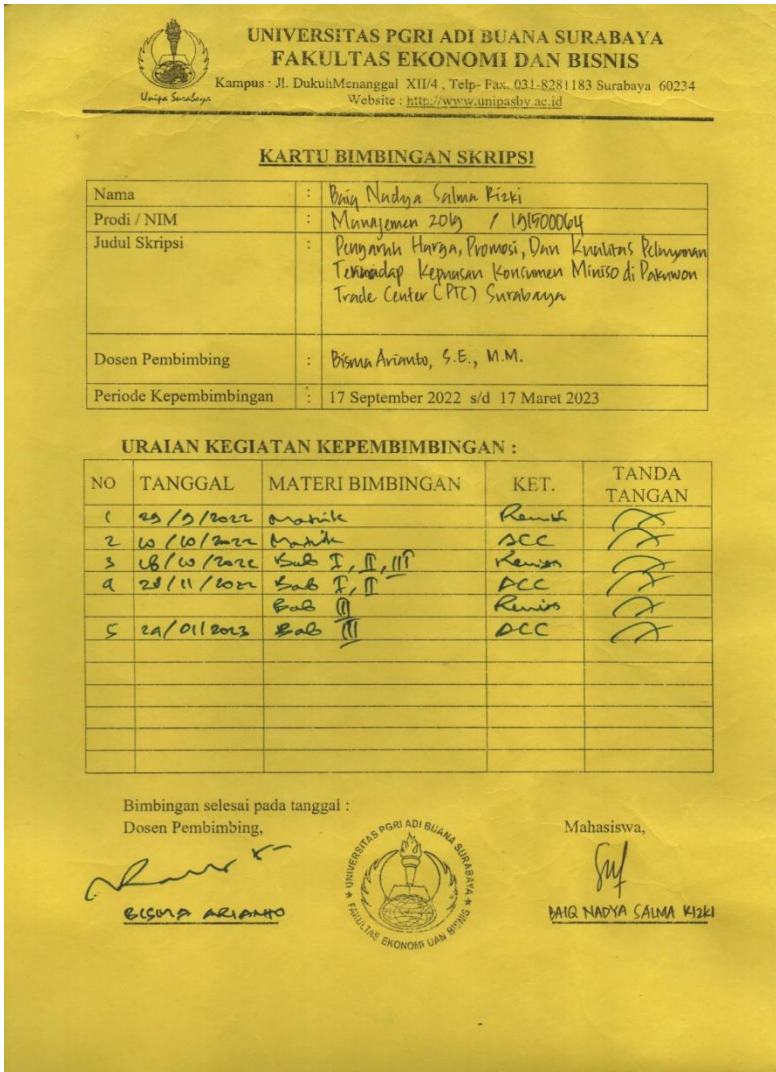 UNIVERSITAS PGRI ADI BUANA SURABAYA
FAKULTAS EKONOMI DAN BISNIS
Kampus : Jl. DukuhMenanggal XII/4 , Telp- Fax. 031-8281183 Surabaya 60234
Website : http://www.unipasby.ac.id
Unipa Surabaya
KARTU BIMBINGAN SKRIPSI
Nama : Baiq Nadya Salma Rizki
Prodi / NIM : Manajemen 2019 / 191500064
Judul Skripsi : Pengaruh Harga, Promosi, Dan Kualitas Pelayanan
Terhadap Keputusan Konsumen Miniso di Pakuwon
Trade Center (PTC) Surabaya
Dosen Pembimbing : Bisma Arianto, S.E., M.M.
Periode Kepembimbingan : 17 September 2022 s/d 17 Maret 2023
URAIAN KEGIATAN KEPEMBIMBINGAN :
NO TANGGAL MATERI BIMBINGAN KET. TANDA TANGAN
1 29/9/2022 Matrik Revisi
2 10/10/2022 Matrik ACC
3 18/10/2022 Bab I, II, III Revisi
4 28/11/2022 Bab I, II ACC
Bab III Revisi
5 24/01/2023 Bab III ACC
Bimbingan selesai pada tanggal :
Dosen Pembimbing, Mahasiswa,
UNIVERSITAS PGRI ADI BUANA SURABAYA
FAKULTAS EKONOMI DAN BISNIS
BISMA ARIANTO BAIQ NADYA SALMA RIZKI